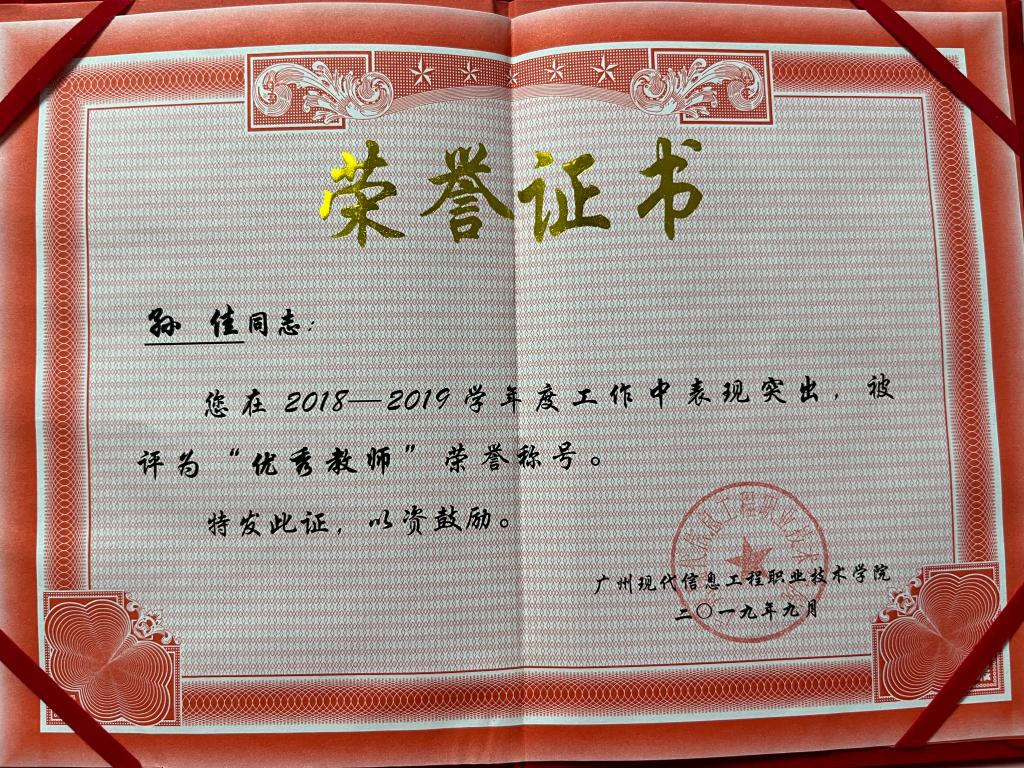 荣誉证书
孙佳同志：
您在2018—2019学年度工作中表现突出，被
评为“优秀教师”荣誉称号。
特发此证，以资鼓励。
广州现代信息工程职业技术学院
二〇一九年九月